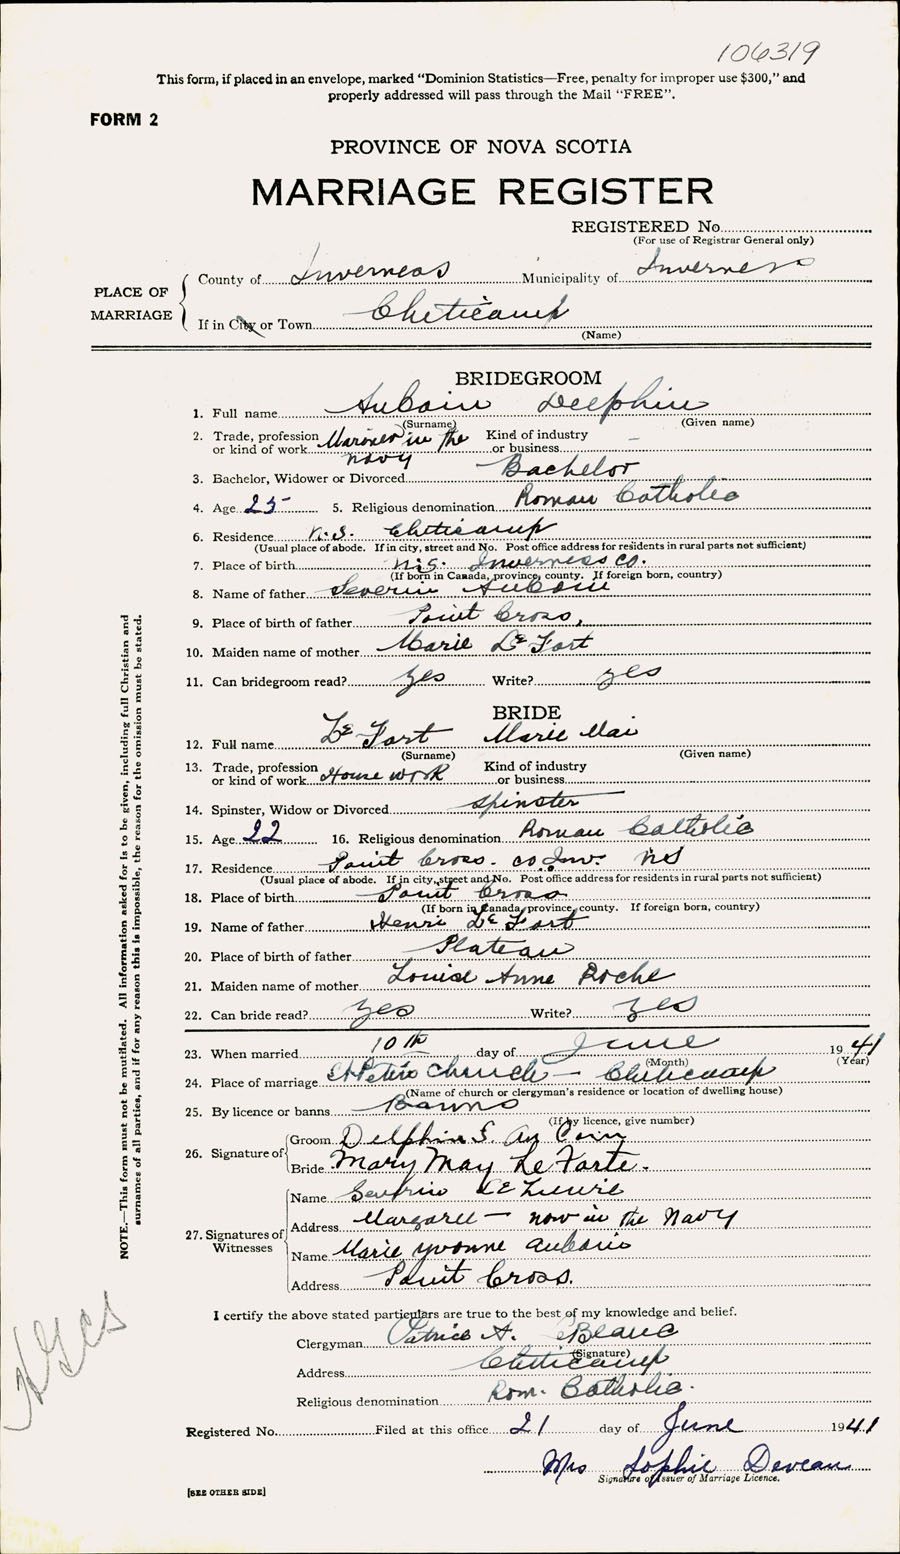 106319
This form, if placed in an envelope, marked "Dominion Statistics—Free, penalty for improper use $300," and
properly addressed will pass through the Mail "FREE".
FORM 2
PROVINCE OF NOVA SCOTIA
MARRIAGE REGISTER
REGISTERED No.
(For use of Registrar General only)
PLACE OF MARRIAGE
County of Inverness Municipality of Inverness
If in City or Town Cheticamp
(Name)
BRIDEGROOM
1. Full name AuCoin Delphin
(Surname) (Given name)
2. Trade, profession or kind of work Mariner in the navy Kind of industry or business –
3. Bachelor, Widower or Divorced Bachelor
4. Age 25 5. Religious denomination Roman Catholic
6. Residence N.S. Cheticamp
(Usual place of abode. If in city, street and No. Post office address for residents in rural parts not sufficient)
7. Place of birth N.S. Inverness Co.
(If born in Canada, province, county. If foreign born, country)
8. Name of father Severin AuCoin
9. Place of birth of father Point Cross,
10. Maiden name of mother Marie Le Fort
11. Can bridegroom read? yes Write? yes
BRIDE
12. Full name Le Fort Marie Mai
(Surname) (Given name)
13. Trade, profession or kind of work House work Kind of industry or business
14. Spinster, Widow or Divorced spinster
15. Age 22 16. Religious denomination Roman Catholic
17. Residence Point Cross. Co Inv. NS
(Usual place of abode. If in city, street and No. Post office address for residents in rural parts not sufficient)
18. Place of birth Point Cross
(If born in Canada, province, county. If foreign born, country)
19. Name of father Henri Le Fort
20. Place of birth of father Plateau
21. Maiden name of mother Louise Anne Roche
22. Can bride read? yes Write? yes
23. When married 10th day of June 1941
(Month) (Year)
24. Place of marriage St Peters Church – Cheticamp
(Name of church or clergyman's residence or location of dwelling house)
25. By licence or banns Banns
(If by licence, give number)
26. Signature of Groom Delphin S. Au Coin
Bride Mary May Le Forte.
27. Signatures of Witnesses
Name Severin
Address Margaree – now in the Navy
Name Marie Yvonne Aucoin
Address Point Cross.
I certify the above stated particulars are true to the best of my knowledge and belief.
Clergyman Patrice A. LeBlanc
(Signature)
Address Cheticamp
Religious denomination Rom. Catholic.
Registered No. Filed at this office 21 day of June 1941
Mrs Sophie Deveau
Signature of Issuer of Marriage Licence.
[SEE OTHER SIDE]
NOTE.—This form must not be mutilated. All information asked for is to be given, including full Christian and
surnames of all parties, and if for any reason this is impossible, the reason for the omission must be stated.